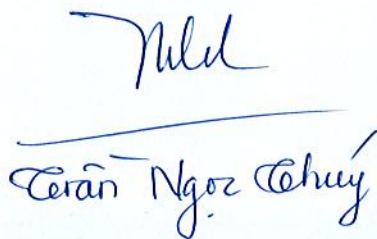 Trần Ngọc Thuý